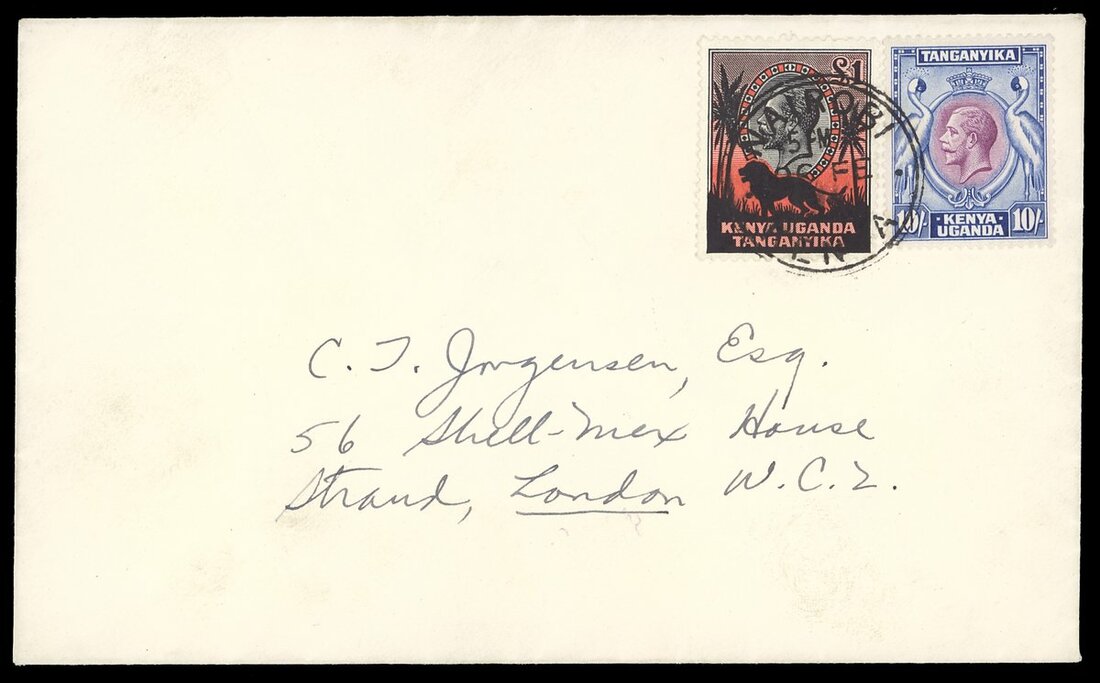 £1
KENYA UGANDA
TANGANYIKA
TANGANYIKA
10/- KENYA 10/-
UGANDA
NAIROBI
KENYA
C. T. Jorgensen, Esq.
56 Shell-Mex House
Strand, London W.C.2.